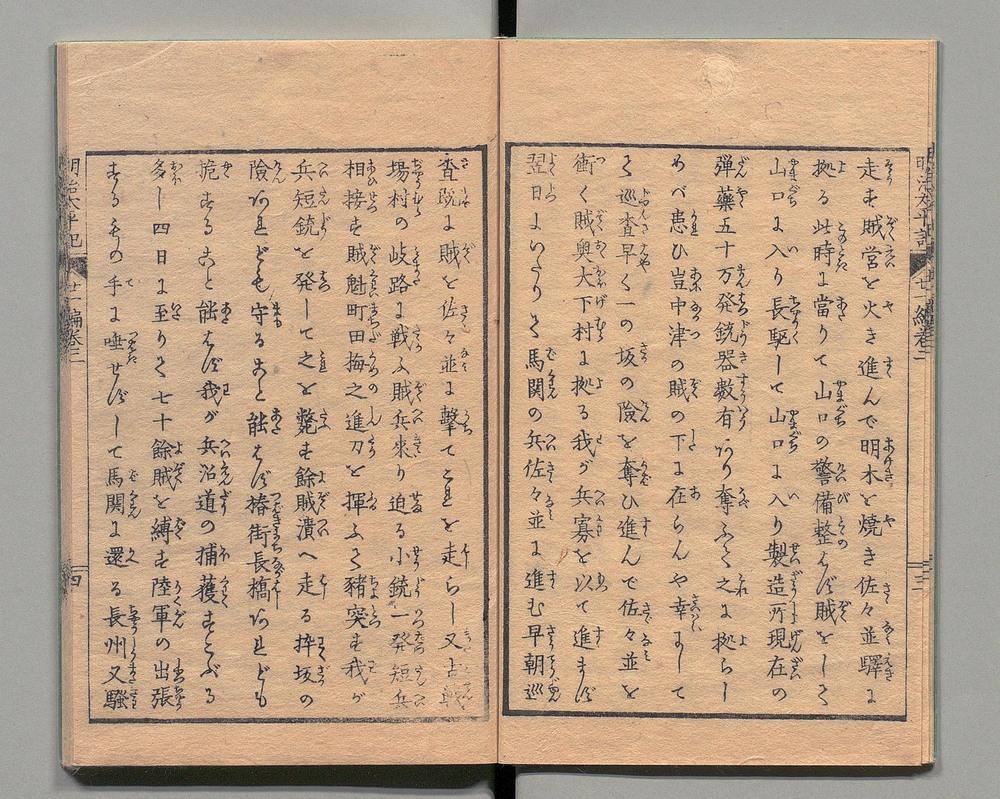 走す賊営を火き進んで明木を焼き佐々並驛に
拠る此時に當りて山口の警備整はず賊をして
山口に入り長駆して山口に入り製造所現在の
弾藥五十万発銃器数有あり奪ふて之に拠らし
めべ患ひ豈中津の賊の下に在らんや幸にして
巡査早く一の坂の險を奪ひ進んで佐々並を
衝く賊奥大下村に拠る我が兵寡を以て進まず
翌日にいたりて馬関の兵佐々並に進む早朝巡
査既に賊を佐々並に擊てこれを走らし又古戰
場村の岐路に戦ふ賊兵来り迫る小銃一発短兵
相接す賊魁町田梅之進刀を揮ふて豬突す我が
兵短銃を発して之を斃す餘賊潰へ走る
坂の
險あれども守ること能はず椿街長橋あれども
すること能はず我が兵沿道の捕獲すこぶる
多し四日に至りて七十餘賊を縛す陸軍の出張
するもの手に唾せずして馬関に還る長州又騒
明治太平記
廿一編巻二
三
明治太平記
廿一編巻二
四